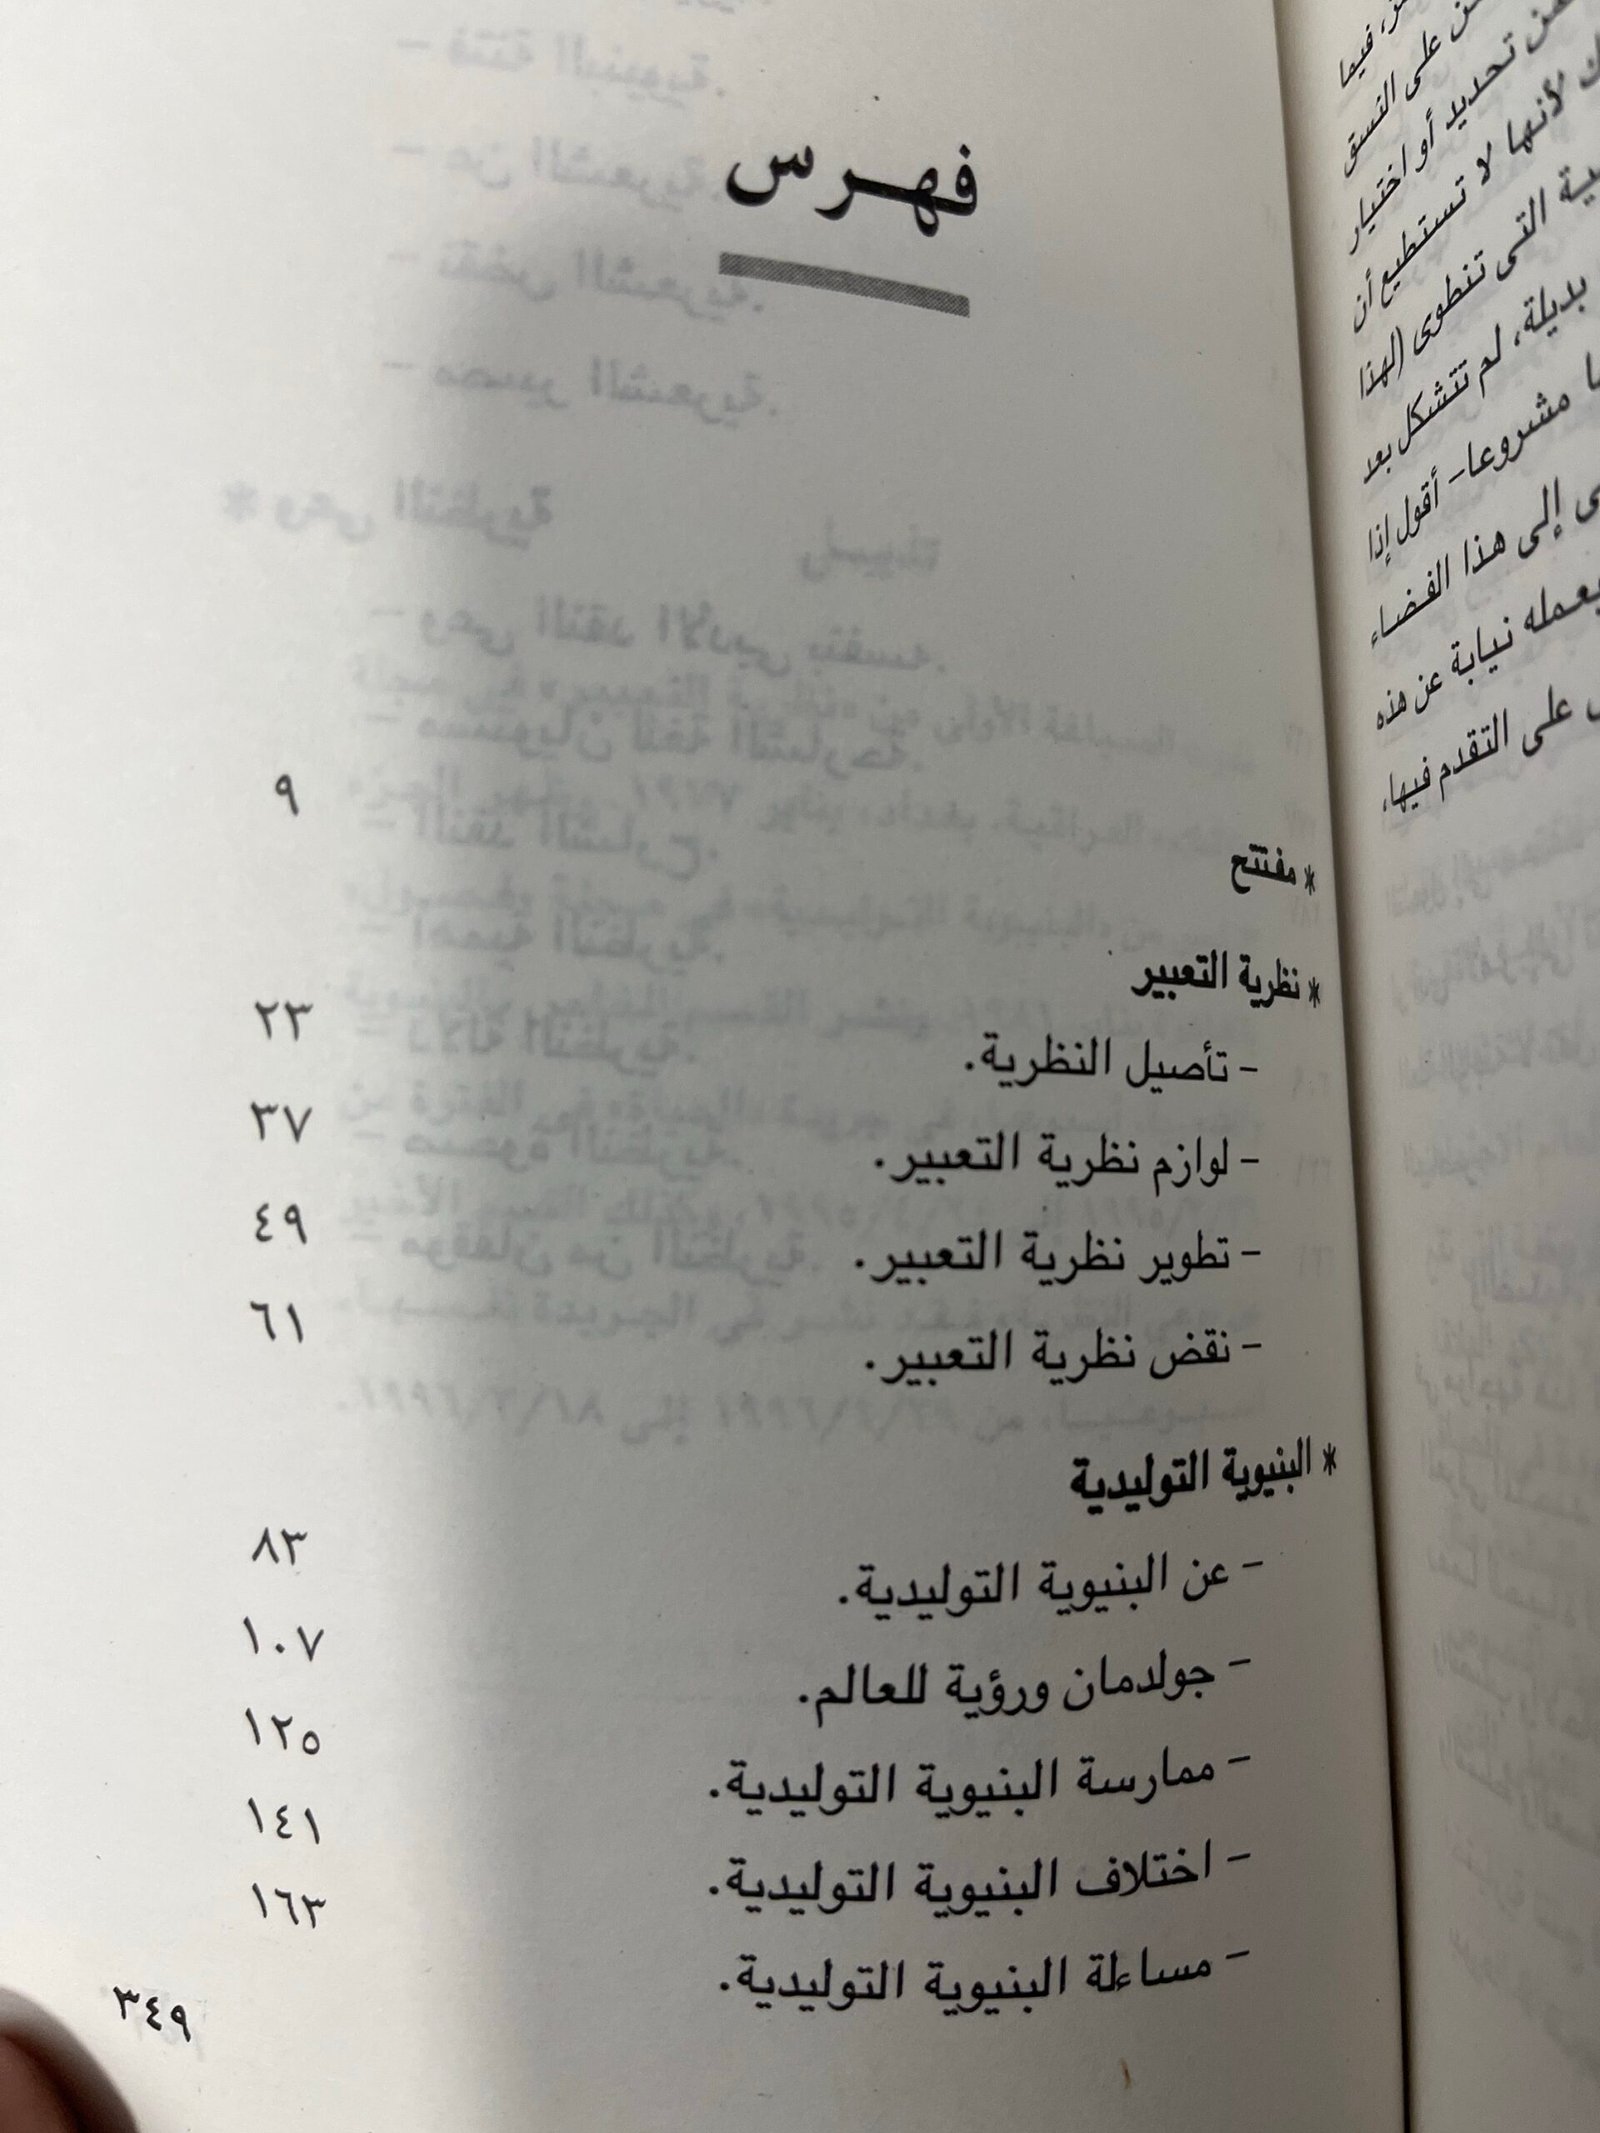 فهرس
* مفتتح ٩
* نظرية التعبير
- تأصيل النظرية. ٢٣
- لوازم نظرية التعبير. ٣٧
- تطوير نظرية التعبير. ٤٩
- نقض نظرية التعبير. ٦١
* البنيوية التوليدية
- عن البنيوية التوليدية. ٨٣
- جولدمان ورؤية للعالم. ١٠٧
- ممارسة البنيوية التوليدية. ١٢٥
- اختلاف البنيوية التوليدية. ١٤١
- مساءلة البنيوية التوليدية. ١٦٣
٣٤٩
فيما
على النسق
تحديد أو اختيار
لأنها لا تستطيع أن
التى تنطوى (لهذا
بديلة، لم تتشكل بعد
مشروعا- أقول إذا
إلى هذا الفضاء
يعمله نيابة عن هذه
على التقدم فيها،